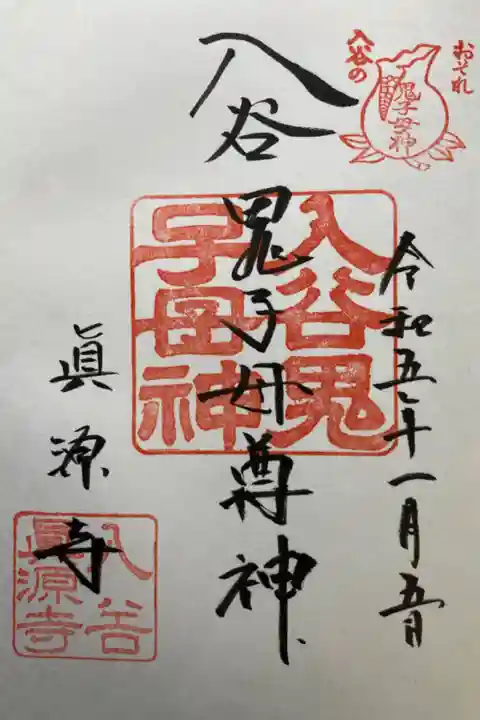 おそれ
入谷の
鬼子母神
令和五年一月五日
入谷鬼子母尊神
入谷鬼
子母神
眞源寺
入谷
眞源寺